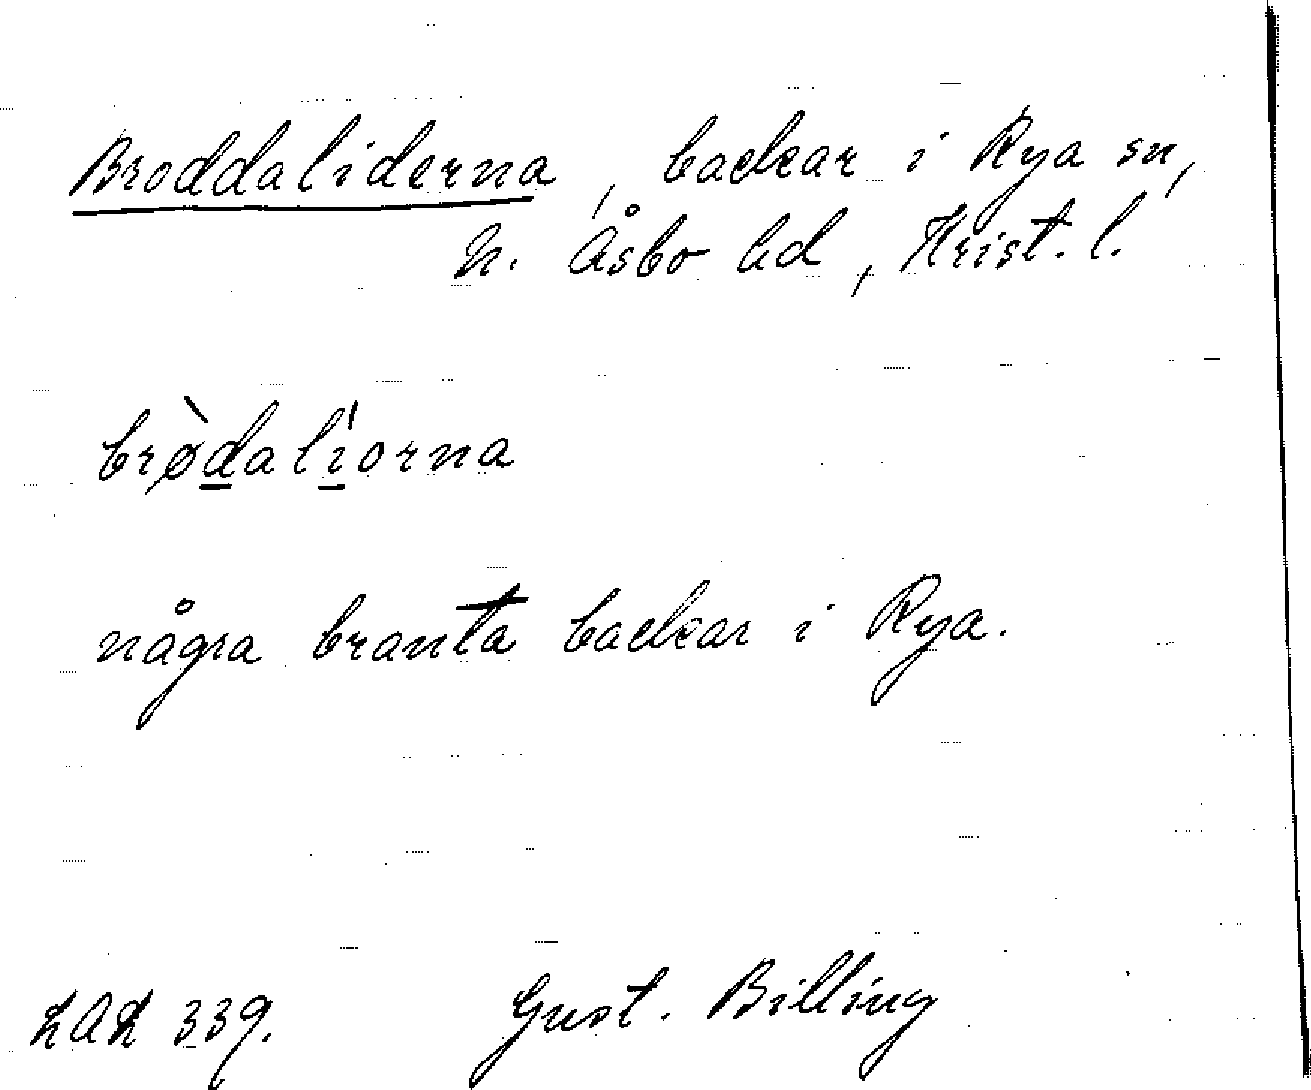 Broddaliderna, backar i Rya sn,
N. Åsbo hd, Krist. l.
brø̀dalíorna
några branta backar i Rya.
LAL 339. Gust. Billing